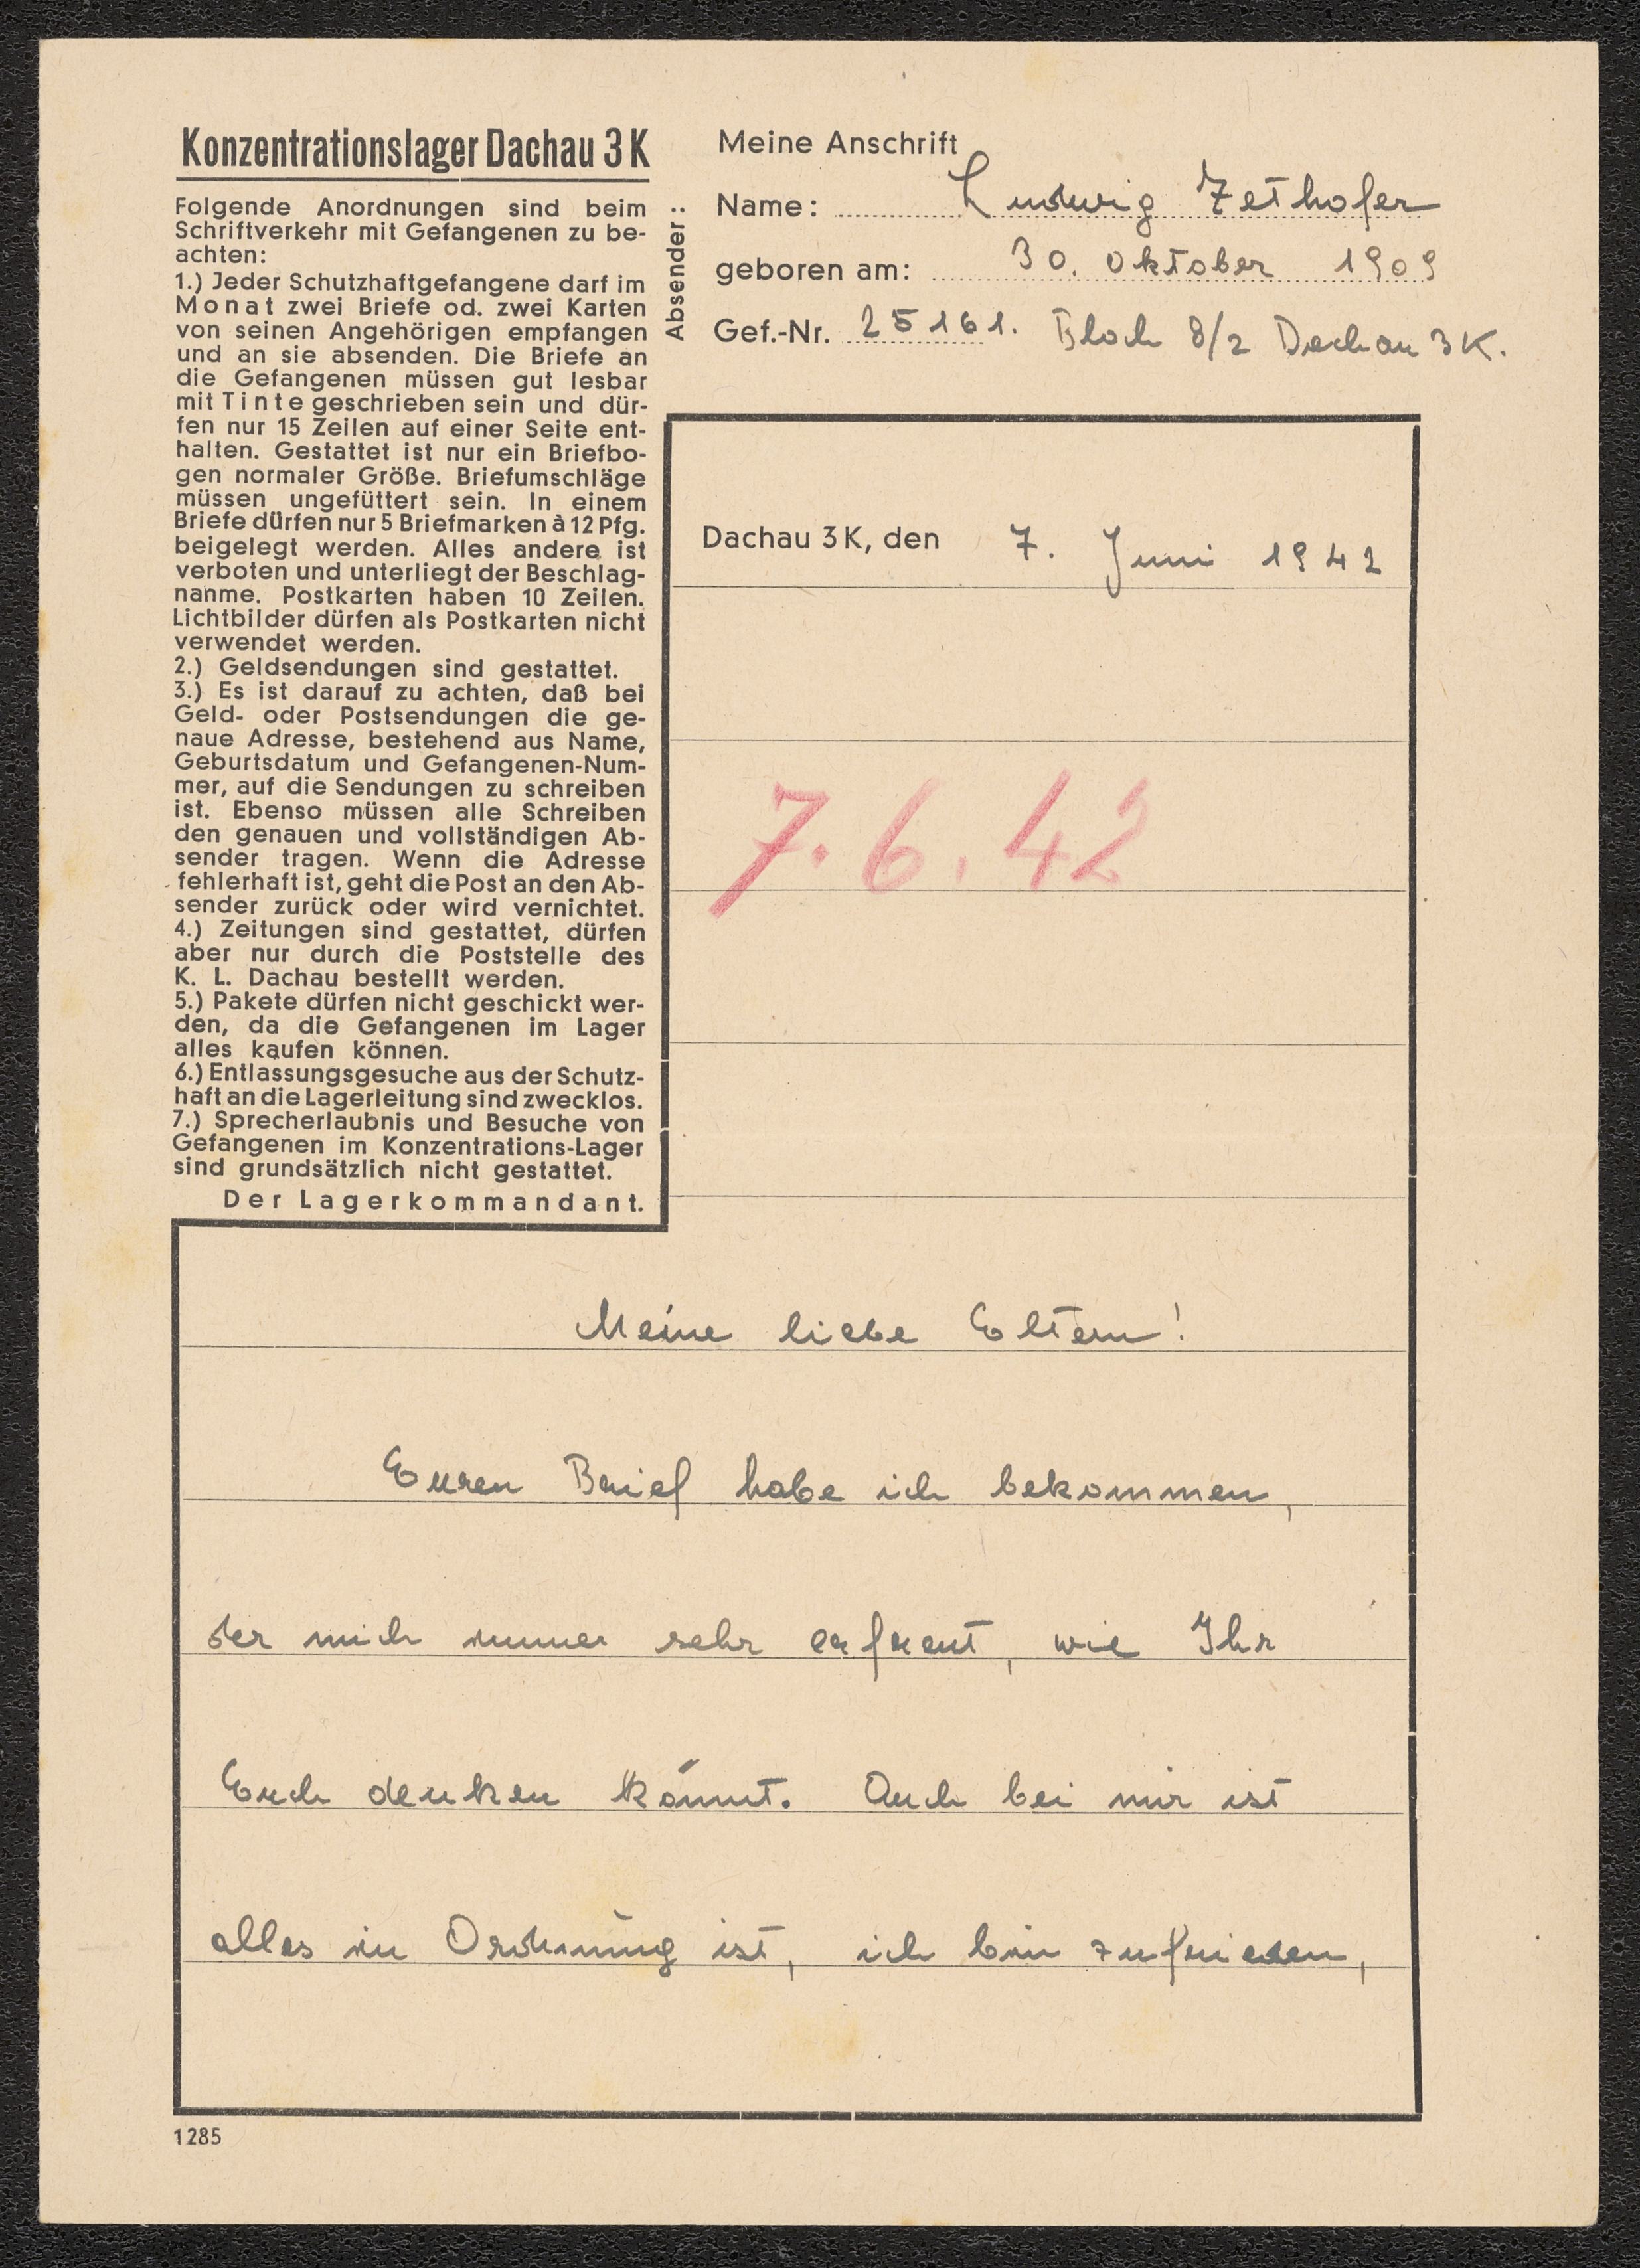 Konzentrationslager Dachau 3 K
Folgende Anordnungen sind beim
Schriftverkehr mit Gefangenen zu be-
achten:
1.) Jeder Schutzhaftgefangene darf im
Monat zwei Briefe od. zwei Karten
von seinen Angehörigen empfangen
und an sie absenden. Die Briefe an
die Gefangenen müssen gut lesbar
mit Tinte geschrieben sein und dür-
fen nur 15 Zeilen auf einer Seite ent-
halten. Gestattet ist nur ein Briefbo-
gen normaler Größe. Briefumschläge
müssen ungefüttert sein. In einem
Briefe dürfen nur 5 Briefmarken à 12 Pfg.
beigelegt werden. Alles andere ist
verboten und unterliegt der Beschlag-
nahme. Postkarten haben 10 Zeilen.
Lichtbilder dürfen als Postkarten nicht
verwendet werden.
2.) Geldsendungen sind gestattet.
3.) Es ist darauf zu achten, daß bei
Geld- oder Postsendungen die ge-
naue Adresse, bestehend aus Name,
Geburtsdatum und Gefangenen-Num-
mer, auf die Sendungen zu schreiben
ist. Ebenso müssen alle Schreiben
den genauen und vollständigen Ab-
sender tragen. Wenn die Adresse
fehlerhaft ist, geht die Post an den Ab-
sender zurück oder wird vernichtet.
4.) Zeitungen sind gestattet, dürfen
aber nur durch die Poststelle des
K. L. Dachau bestellt werden.
5.) Pakete dürfen nicht geschickt wer-
den, da die Gefangenen im Lager
alles kaufen können.
6.) Entlassungsgesuche aus der Schutz-
haft an die Lagerleitung sind zwecklos.
7.) Sprecherlaubnis und Besuche von
Gefangenen im Konzentrations-Lager
sind grundsätzlich nicht gestattet.
Der Lagerkommandant.
Absender:
Meine Anschrift
Name: Ludwig Zethofer
geboren am: 30. Oktober 1909
Gef.-Nr. 25161. Block 8/2 Dachau 3 K.
Dachau 3 K, den 7. Juni 1942
7.6.42
Meine liebe Eltern!
Euren Brief habe ich bekommen,
der mich immer sehr erfreut, wie Ihr
Euch denken könnt. Auch bei mir ist
alles in Ordnung ist, ich bin zufrieden,
1285